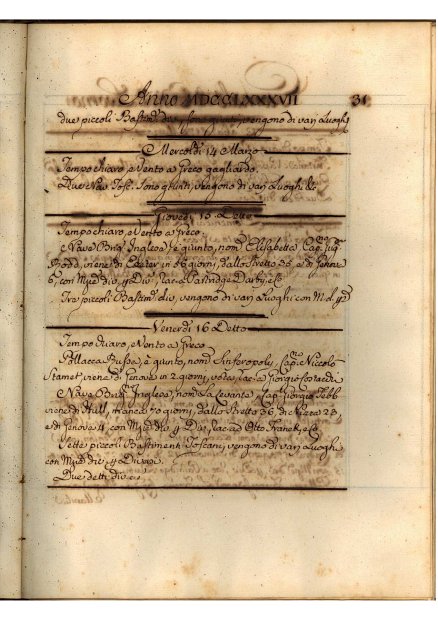 Anno MDCCLXXXVII 31
due piccoli Bastim.ti div. sono giunti, vengono di varj Luoghi
Mercoldi 14 Marzo
Tempo chiaro, e Vento a Greco gagliardo.
Due Nav. Tosc. sono giunti, vengono di varj Luoghi &c
Giovedi 15 Detto
Tempo chiaro, e Vento a Greco.
Nave Brig. Inglese è giunto, nom. Elisabetta Cap.
viene di Exeter in 56 giorni, dallo Stretto 36, e di
6, con M. div. p Div. rac. a Partridge Darby, e
Tre piccoli Bastim. div. vengono di varj Luoghi con M. d. p
Venerdi 16 Detto
Tempo chiaro, e Vento a Greco
Pollacca Russa, è giunto, nom. Sinferopoly, Cap. Niccolò
Stamet viene di Genova in 2. giorni, vota, rac. a Giorgio
Nave Brig. Inglese, nom. La Levante, Cap. Giorgio
viene di Hull, manca 70 giorni, dallo Stretto 36, di Nizza 23,
e di Genova 4, con M. div. p Div. rac. ad Otto Franck, e
Sette piccoli Bastimenti Toscani, vengono di varj Luoghi
con M. div. p Div.
Due detti div.